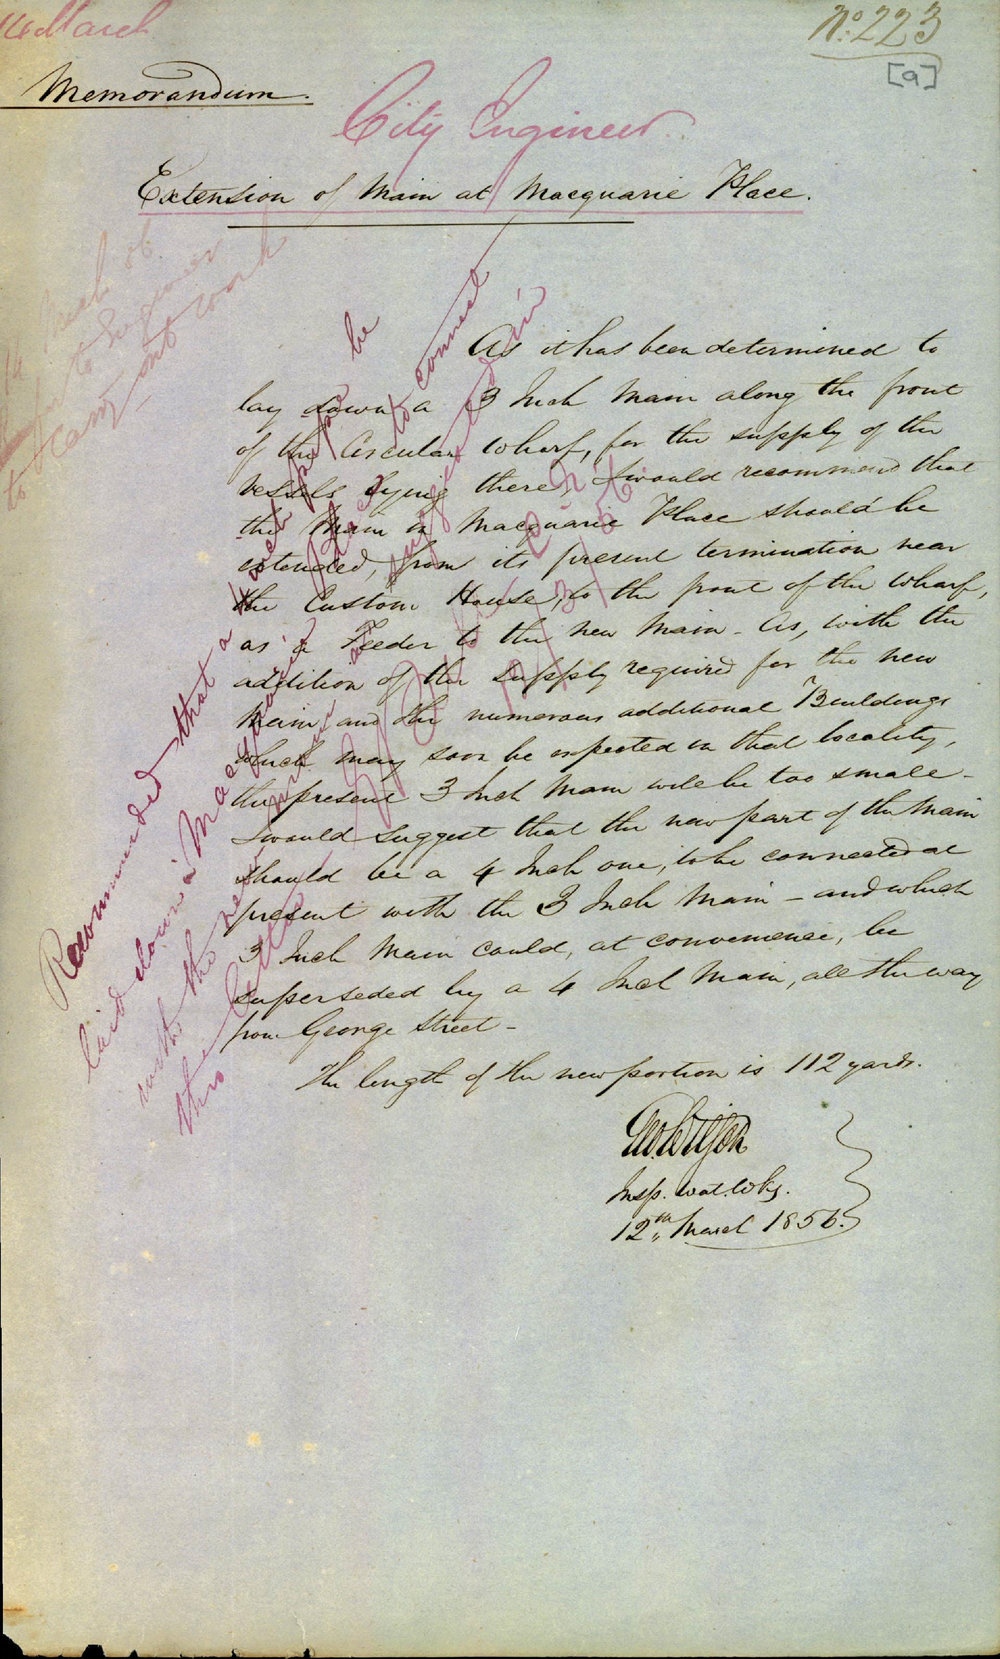 14 March
No. 223
[9]
Memorandum.
City Engineer.
Extension of Main at Macquarie Place.
14 March 56
to Engineer
to carry out work
As it has been determined to
lay down a 3 Inch Main along the front
of the Circular Wharf, for the supply of the
Vessels lying there, I would recommend that
the Main in Macquarie Place should be
extended, from its present termination near
the Custom House, to the front of the Wharf,
as a Feeder to the new Main - As, with the
addition of the supply required for the new
Main, and the numerous additional Buildings
which may soon be expected in that locality,
the present 3 Inch Main will be too small -
I would suggest that the new part of the Main
should be a 4 Inch one, to be connected at
present with the 3 Inch Main - and which
3 Inch Main could, at convenience, be
superseded by a 4 Inch Main, all the way
from George Street -
The length of the new portion is 112 yards.
Insp. Wat. Wks.
12th March 1856.
Recommended that a 4 inch pipe be
laid down in Macquarie Place to connect
with the new main as suggested in
this letter